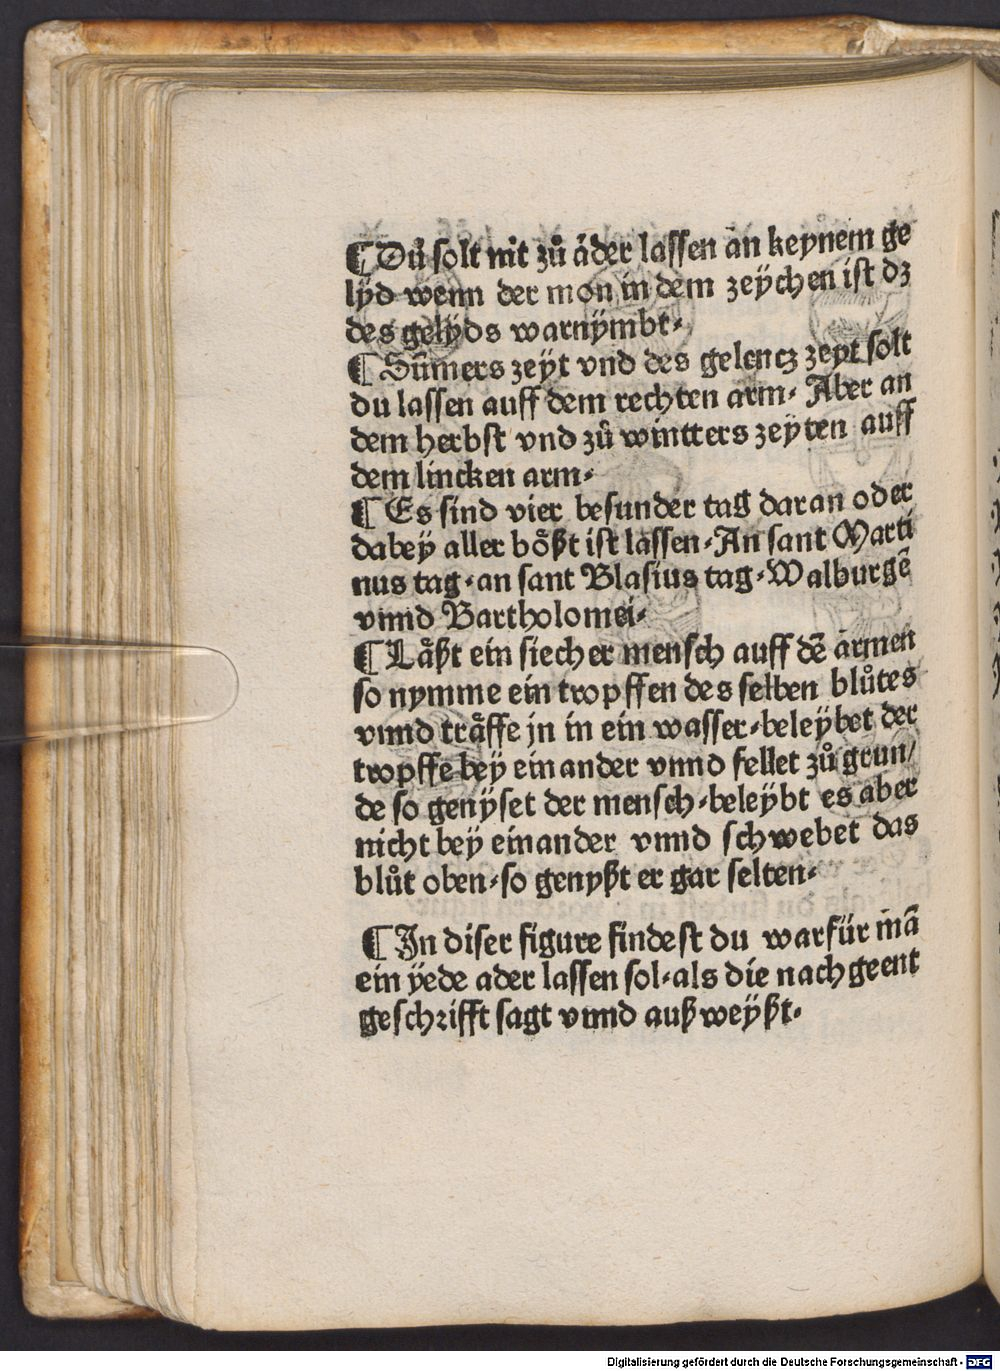 ¶ Du̇ solt nit zů åder lassen an keynem ge
lÿd wenn der mon in dem zeÿchen ist dz
des gelÿds warnÿmbt.
¶ Sūmers zeÿt vnd des gelencz zeyt solt
du lassen auff dem rechten arm. Aber an
dem herbst vnd zů wintters zeÿten auff
dem lincken arm.
¶ Es sind vier besunder tag daran oder
dabeÿ aller bößt ist lassen. An sant Marti
nus tag. an sant Blasius tag. Walburgē
vnnd Bartholomei.
¶ Låßt ein siecher mensch auff dē armen
so nymme ein tropffen des selben blůtes
vnnd tråffe jn in ein wasser. beleÿbet der
tropffe beÿ einander vnnd fellet zů grun/
de so genÿset der mensch. beleÿbt es aber
nicht beÿ einander vnnd schwebet das
blůt oben. so genyßt er gar selten.
¶ In diser figure findest du warfür mā
ein ÿede ader lassen sol. als die nachgeent
geschrifft sagt vnnd außweÿßt.
Digitalisierung gefördert durch die Deutsche Forschungsgemeinschaft - DFG